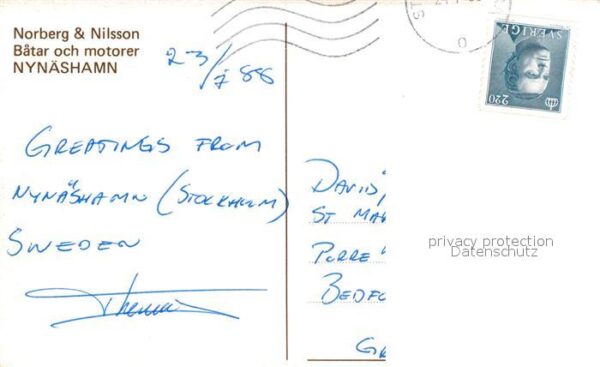 Norberg & Nilsson
Båtar och motorer
NYNÄSHAMN
23/7 88
GREATINGS FROM
NYNÄSHAMN (STOCKHOLM)
SWEDEN
SVERIGE
220
DAVID,
ST MA
PURRE
BEDFO
privacy protection
Datenschutz